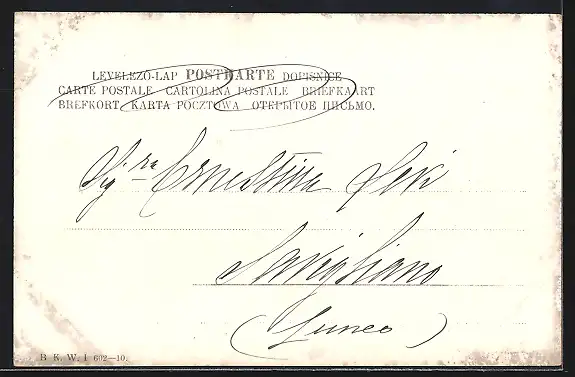 LEVELEZŐ-LAP POSTKARTE DOPISNICE
CARTE POSTALE CARTOLINA POSTALE BRIEFKAART
BREFKORT KARTA POCZTOWA ОТКРЫТОЕ ПИСЬМО.
Sig.ra Ernestina
Savigliano
(Cuneo)
B. K. W. I 602—10.